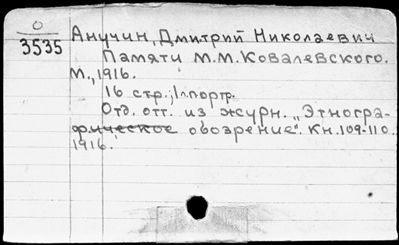 О
3535
Анучин, Дмитрий Николаевич
Памяти М.М. Ковалевского.
М., 1916.
16 стр.; 1 л. портр.
Отд. отт. из журн. „Этногра-
фическое обозрение". Кн. 109-110.
1916.